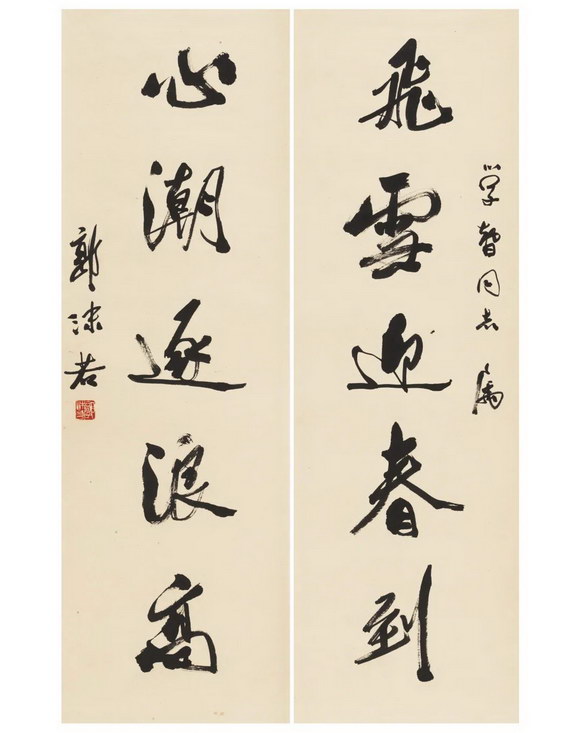 飛雪迎春到
学智同志属
心潮逐浪高
郭沫若